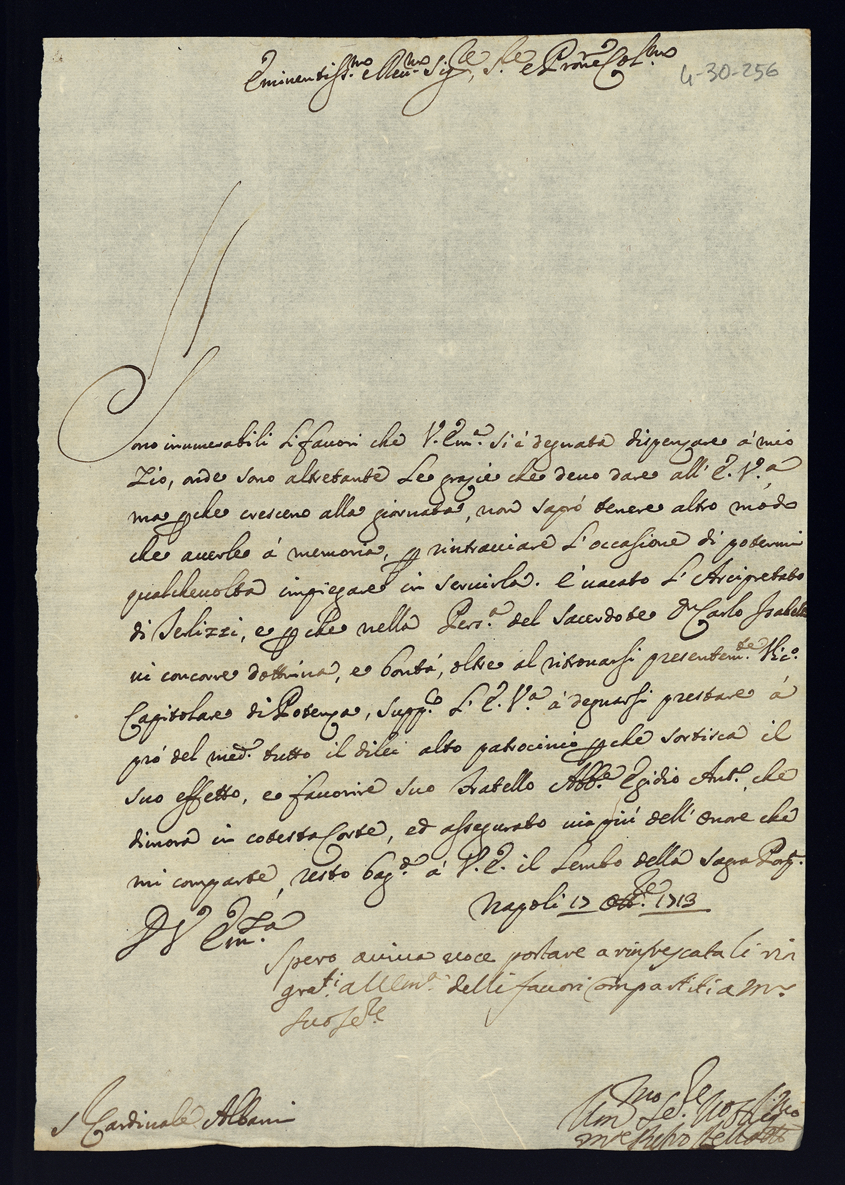 Eminentiss.mo e Reu.mo Sig.re, S.re e Pron.e Col.mo
4-30-256
Sono innumerabili li fauori che V.Em.a si è degnata dispenzare à mio
Zio, onde sono altretante le grazie che deuo dare all' E.V.a
ma perche cresceno alla giornata, non saprò tenere altro modo
che auerle à memoria, per rintracciare l'occasione di potermi
qualcheuolta impiegare in seruirla. È uacato l'Arcipretato
di Terlizzi, e perche nella Pers.a del Sacerdote D. Carlo
ui concorre dottrina, e bontà, oltre al ritrouarsi presentem.te Vic.o
Capitolare di Potenza, supp.co l'E.V.a à degnarsi prestare à
prò del med.o tutto il dilei alto patrocinio perche sortisca il
suo effetto, e fauorire suo fratello Abb.e Egidio Ant.o che
dimora in cotesta Corte, ed assegurato uiapiù dell'onore che
mi comparte, resto bag.do à V.E. il Lembo della Sagra Porp.
Napoli 17 Ott.e 1713
D V Em.za
Spero auiua uoce portare a rinfrescata li rin
grat.i all'Em.a delli fauori compartiti a
suo Se.re
S Cardinale Albani
Um.mo Se.re